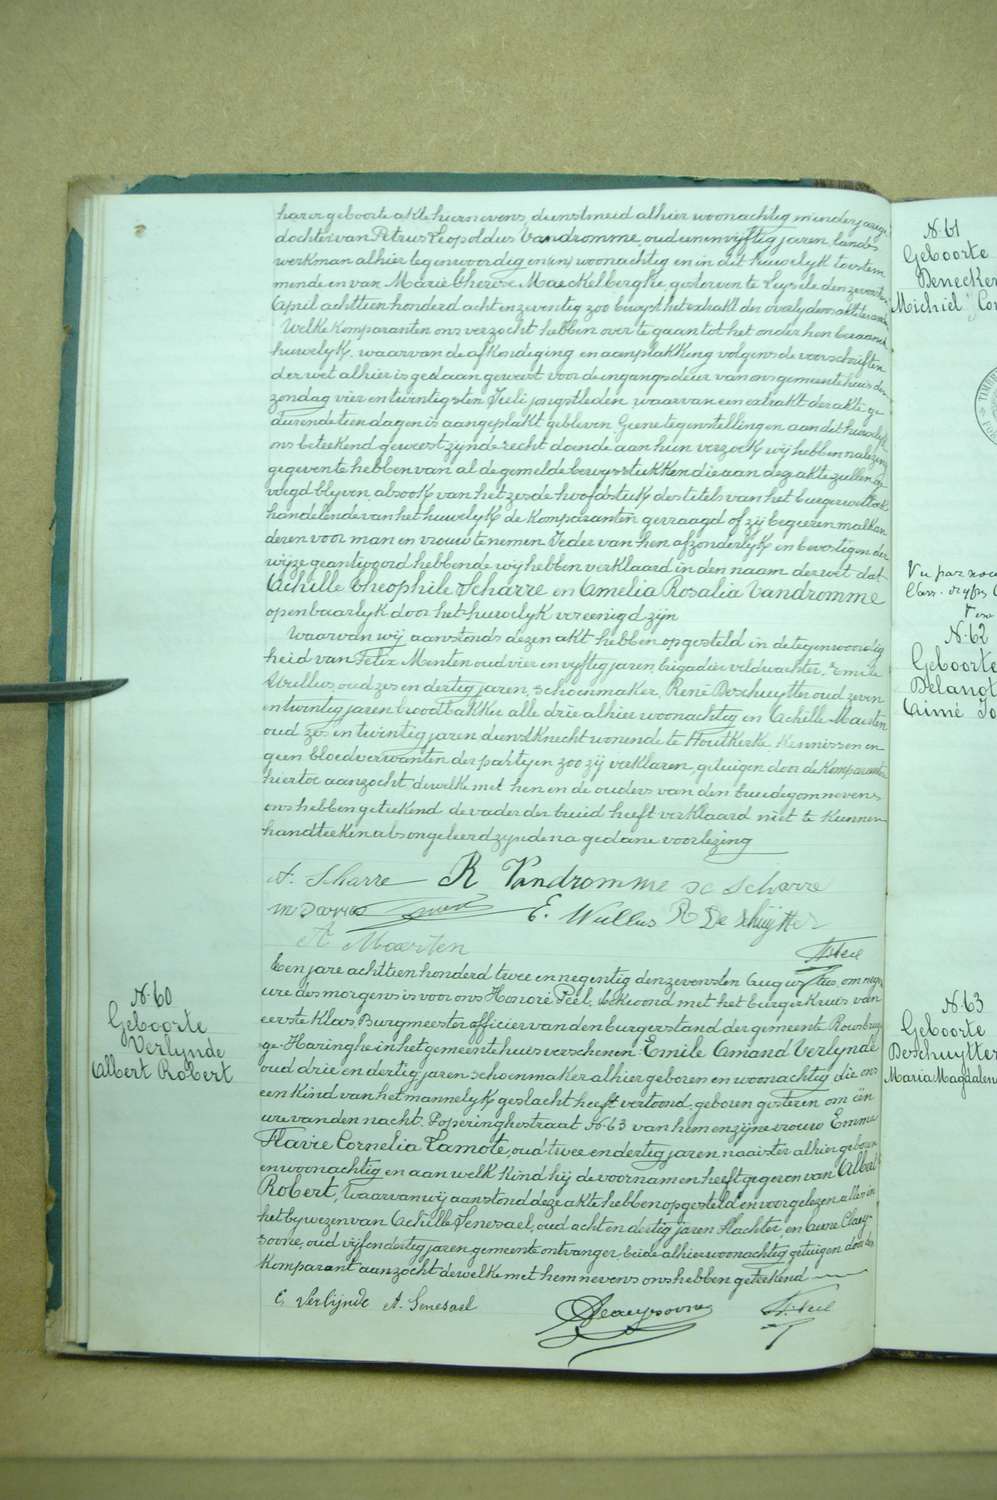 harer geboorte akte hiernevens, dienstmeid alhier woonachtig minderjarige
dochter van Petrus Leopoldus Vandromme, oud een en vyftig jaren, lands
werkman alhier tegenwoordig en (en) woonachtig en in dit huwelyk toestem
mende en van Marie Therese Maeckelberghe, gestorven te Leysele den zevensten
April achttien honderd acht en zeventig zoo bewyst het extrakt der overlydensakte
Welke komparanten ons verzocht hebben over te gaan tot het onder hen beraamd
huwelyk, waarvan de afkondiging en aanplakking volgens de voorschriften
der wet alhier is gedaan geweest voor de ingangsdeur van ons gemeentehuis den
zondag vier en twintigsten Juli jongstleden, waarvan een extrakt der akte ge
durende tien dagen is aangeplakt gebleven Geene tegenstellingen aan dit huwelyk
ons beteekend geweest zynde recht doende aan hun verzoek wy hebben na lezing
gegeven te hebben van al de gemelde bewysstukken die aan deze akte zullen ge
voegd blyven alsook van het zesde hoofdstuk des titels van het burgerwetboek
handelende van het huwelyk de komparanten gevraagd of zij begeeren malkan
deren voor man en vrouw te nemen Ieder van hen afzonderlyk en bevestigen der
wijze geantwoord hebbende wy hebben verklaard in den naam der wet dat
Achille Theophile Scharre en Amelia Rosalia Vandromme
openbaarlyk door het huwelyk vereenigd zyn
Waarvan wij aanstonds dezen akt hebben opgesteld in de tegenwoordig
heid van Felix Menten oud vier en vyftig jaren, brigadier veldwachter, Emile
Wullus, oud zes en dertig jaren, schoenmaker, René Deschuytter oud zeven
en twintig jaren broodbakker alle drie alhier woonachtig en Achille Maerten
oud zes en twintig jaren dienstknecht wonende te Houtkerke kennissen en
geen bloedverwanten der partyen zoo zij verklaren, getuigen door de komparanten
hiertoe aanzocht dewelke met hen en de ouders van den bruidegom nevens
ons hebben geteekend de vader der bruid heeft verklaard niet te kunnen
handteeken als ongeleerd zynde na gedane voorlezing
A. Scharre R Vandromme sc Scharre
E. Wullus R De Schuytter
A Maerten
H. Peel
N. 60
Geboorte
Verlynde
Albert Robert
Een jare achttien honderd twee en negentig den zevensten Augustus, om negen
ure des morgens is voor ons Honoré Peel, vekwoond met het burgerkruis van
eerste klas Burgmeester officier van den burgerstand der gemeente Rousbrug
ge-Haringhe in het gemeentehuis verschenen Emile Amand Verlynde
oud drie en dertig jaren schoenmaker alhier geboren en woonachtig die ons
een kind van het mannelyk geslacht heeft vertoond, geboren gisteren om een
ure van den nacht, Poperinghestraat N. 63 van hem en zyne vrouw Emma
Flavie Cornelia Lamote, oud twee en dertig jaren naaister alhier geboren
en woonachtig en aan welk kind hij de voornamen heeft gegeven van Albert
Robert, Waarvan wij aanstond deze akte hebben opgesteld en voorgelezen alles in
het bywezen van Achille Senesael, oud acht en dertig jaren slachter, en Clay-
soone, oud vijf en dertig jaren gemeente ontvanger, beide alhier woonachtig getuigen door den
komparant aanzocht dewelke met hem nevens ons hebben geteekend
E. Verlijnde A. Senesael Claeysoone H. Peel
N. 61
Geboorte
Denecker
Michiel Cor
Vu par nous
N. 62
Geboorte
Delanot
Aimé Jo
N. 63
Geboorte
Deschuytter
Maria Magdalena